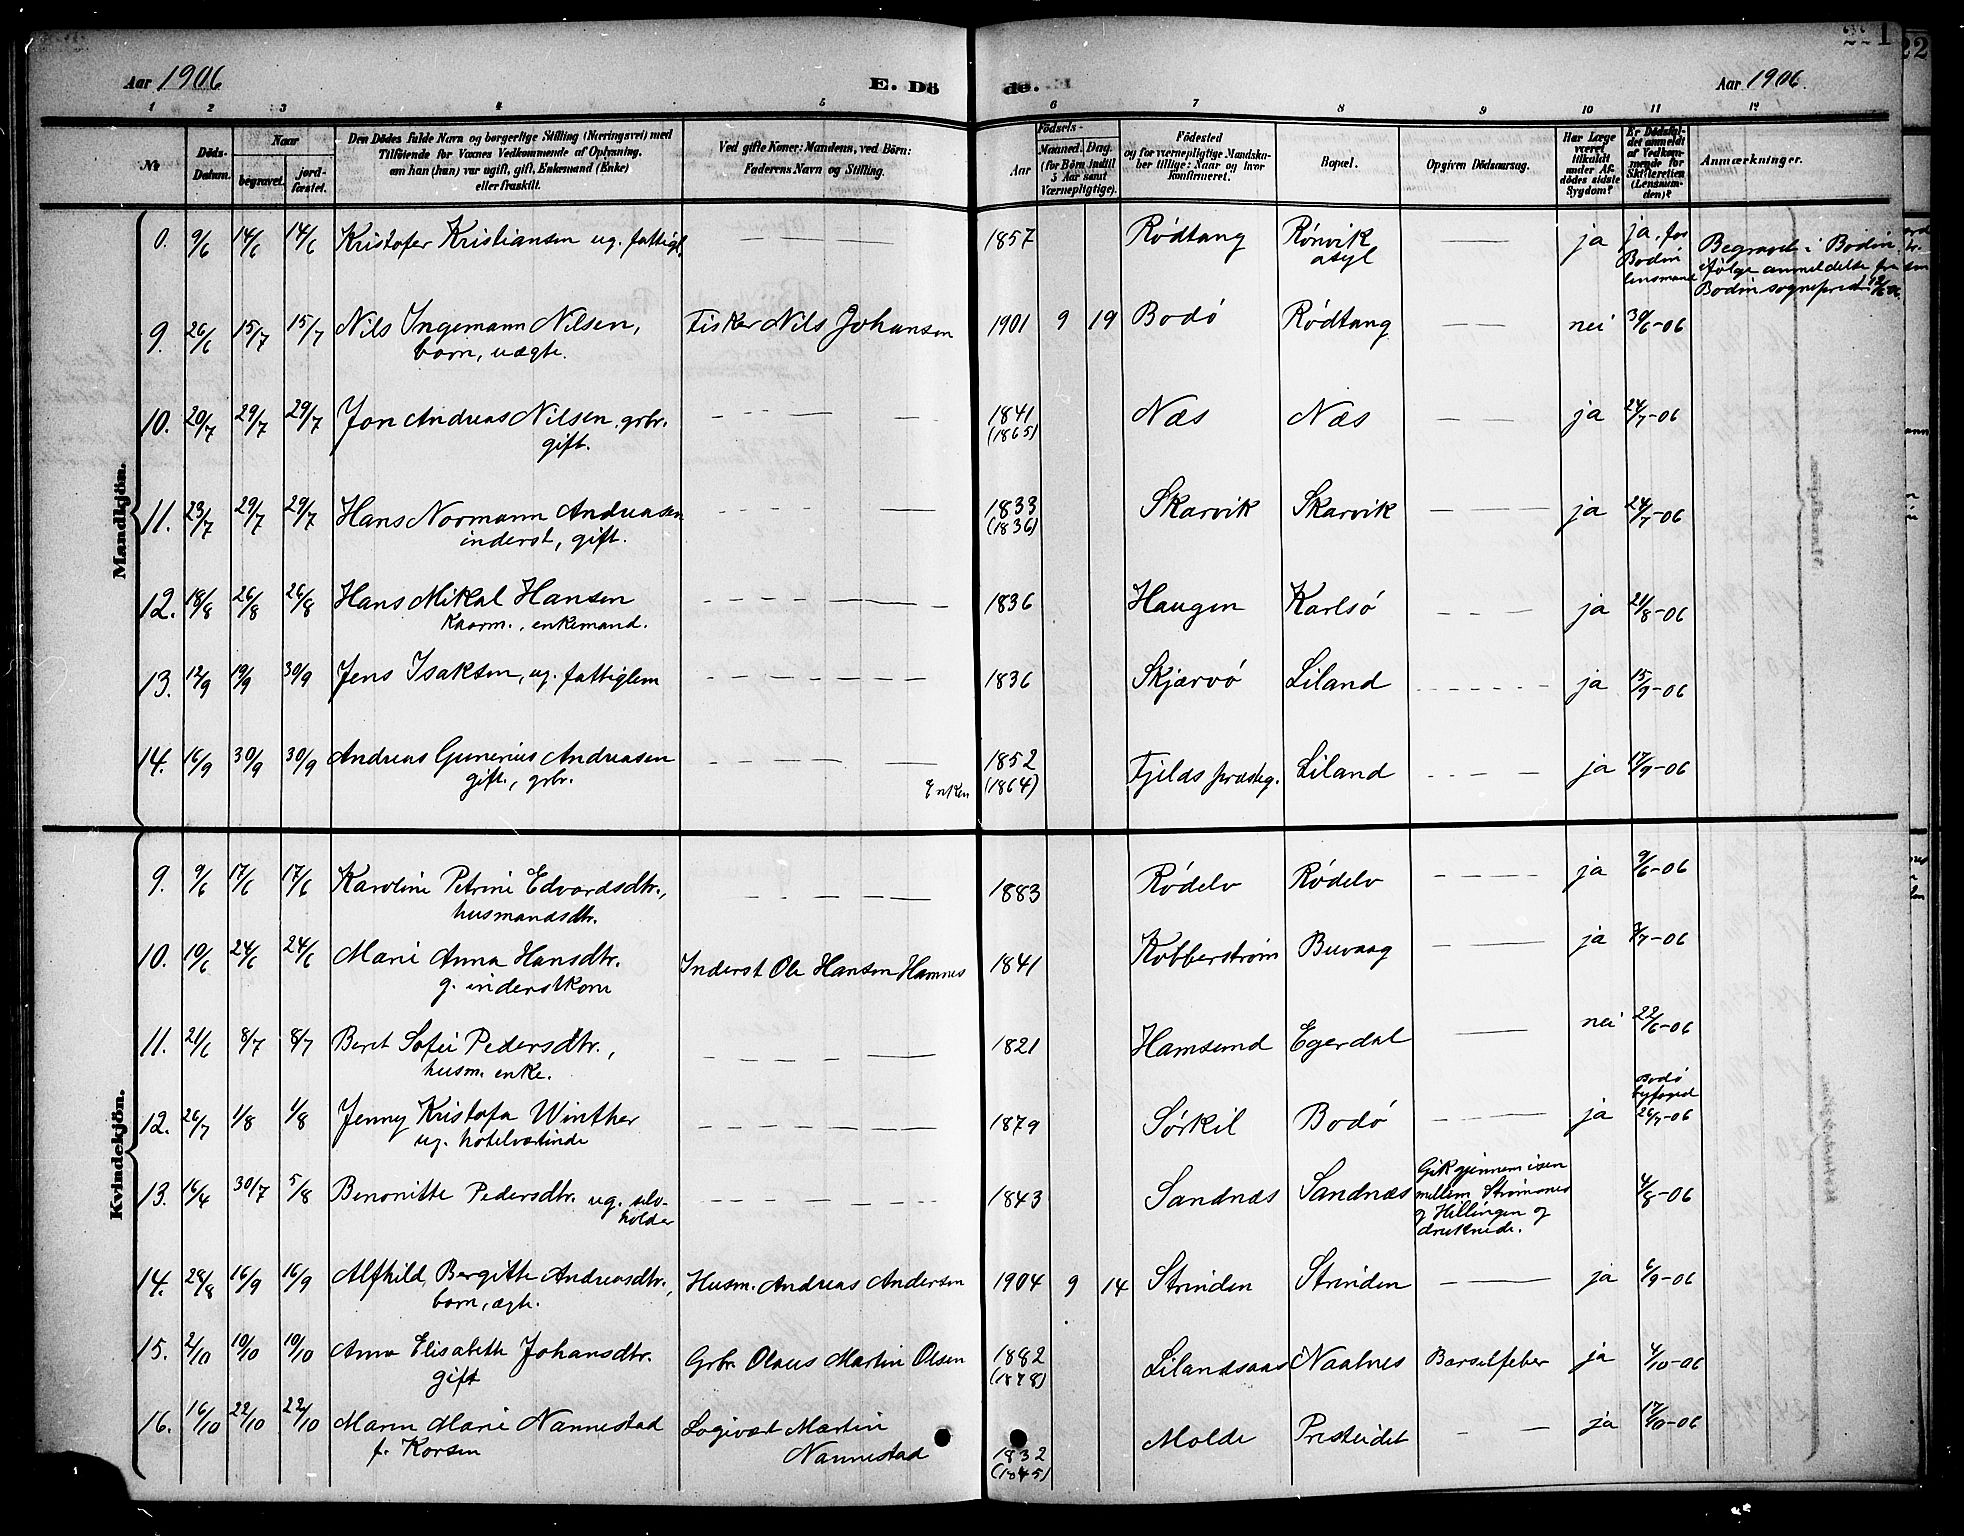 Aar 1906
E. Dö
de.
Aar 1906.
221
22
1 2 3 4 5 6 7 8 9 10 11 12
No
Döds-Datum.
Naar
begravet.
jordfæstet.
Den Dödes fulde Navn og borgerlige Stilling (Næringsvei) med
Tilföiende for Voxnes Vedkommende af Oplysning,
om han (hun) var ugift, gift, Enkemand (Enke)
eller fraskilt.
Ved gifte Koner: Mandens, ved Börn:
Faderens Navn og Stilling.
Födsels-
Aar
Maaned. Dag.
(for Börn indtil
5 Aar samt
Værnepligtige).
Födested
og for værnepligtige Mandska-
ber tillige: Naar og hvor
konfirmeret.
Bopæl.
Opgiven Dödsaarsag.
Har Læge
været
tilkaldt
under Af-
dödes sidste
Sygdom?
Er Dödsfal-
det anmeldt
af Vedkom-
mende for
Skifteretten
(Lensman-
den)?
Anmærkninger.
Mandkjön.
0. 9/6 14/6 14/6 Kristofer Kristiansen ug. fattigl. 1857 Rødtang Rønvik asyl ja ja, for Bodin lensmand Begravet i Bodin
ifølge anmeldelse fra
Bodin sogneprest 12/6 06.
9. 26/6 15/7 15/7 Nils Ingemann Nilsen, Fisker Nils Johansen 1901 9 19 Bodø Rødtang nei 30/6-06
barn, uægte.
10. 20/7 29/7 29/7 Jon Andreas Nilsen, grbr. 1841 Næs Næs ja 24/7-06
gift. (1865)
11. 23/7 29/7 29/7 Hans Normann Andreasen 1833 Skarvik Skarvik ja 24/7-06
inderst, gift. (1836)
12. 18/8 26/8 26/8 Hans Mikal Hansen 1836 Haugen Karlsø ja 21/8-06
kaarm., enkemand.
13. 12/9 19/9 30/9 Jens Isaksen, ug. fattiglem 1836 Skjærvø Liland ja 15/9-06
14. 16/9 30/9 30/9 Andreas Gunerius Andreasen 1852 Fjelds præsteg. Liland ja 17/9-06
gift., grbr. Enken (1864)
Kvindekjön.
9. 9/6 17/6 17/6 Karoline Petrine Edvardsdtr., 1883 Rødelv Rødelv ja 9/6-06
husmandsdtr.
10. 19/6 24/6 24/6 Marie Anna Hansdtr. Inderst Ole Hansen Hamnes 1841 Kobberstrøm Buvaag ja 3/7-06
g. inderstkone
11. 21/6 8/7 8/7 Beret Sofie Pedersdtr., 1821 Hamsund Egerdal nei 22/6-06
husm. enke.
12. 26/7 1/8 1/8 Jenny Kristofa Winther 1879 Sørkil Bodø ja Bodø byfoged 26/7-06
ug. hotelvertinde
13. 16/4 30/7 5/8 Benonitte Pedersdtr. ug. selv-
holder 1843 Sandnæs Sandnæs Gik gjennem isen
mellem Strømsnes
og Hillingen og
druknede. 4/8-06
14. 28/8 16/9 16/9 Alfhild, Bergitte Andreasdtr., Husm. Andreas Andersen 1904 9 14 Strinden Strinden ja 6/9-06
barn, ægte.
15. 2/10 10/10 10/10 Anna Elisabeth Johansdtr. Grbr. Olaus Martin Olsen 1882 Lilandsaas Naatnes Barselfeber ja 4/10-06
gift (1878)
16. 16/10 22/10 22/10 Maren Marie Nannestad Logivært Martin
Nannestad 1832 Molde Presteidet ja 17/10-06
f. Korsen (1845)